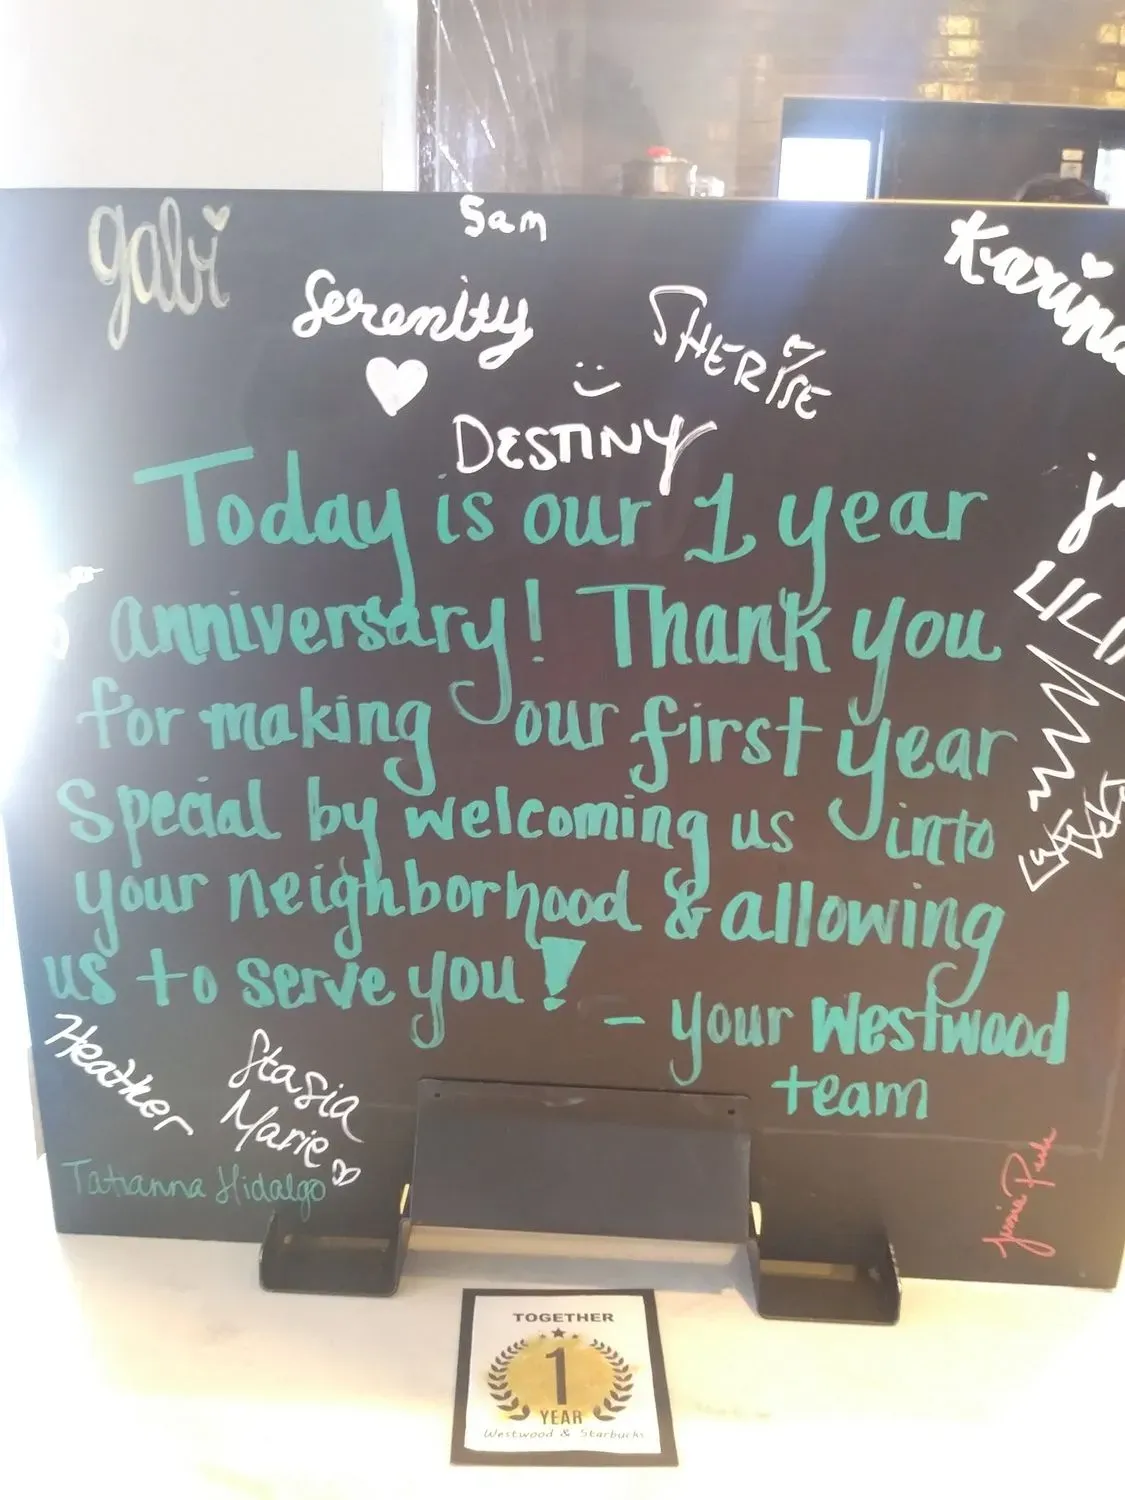 gabi
Sam
Karina
Serenity
SHERISE
DESTINY
Today is our 1 year
anniversary! Thank you
for making our first year
special by welcoming us into
your neighborhood & allowing
us to serve you!
- your Westwood
team
Heather
Stasia
Marie
Tatianna Hidalgo
TOGETHER
1
YEAR
Westwood & Starbucks